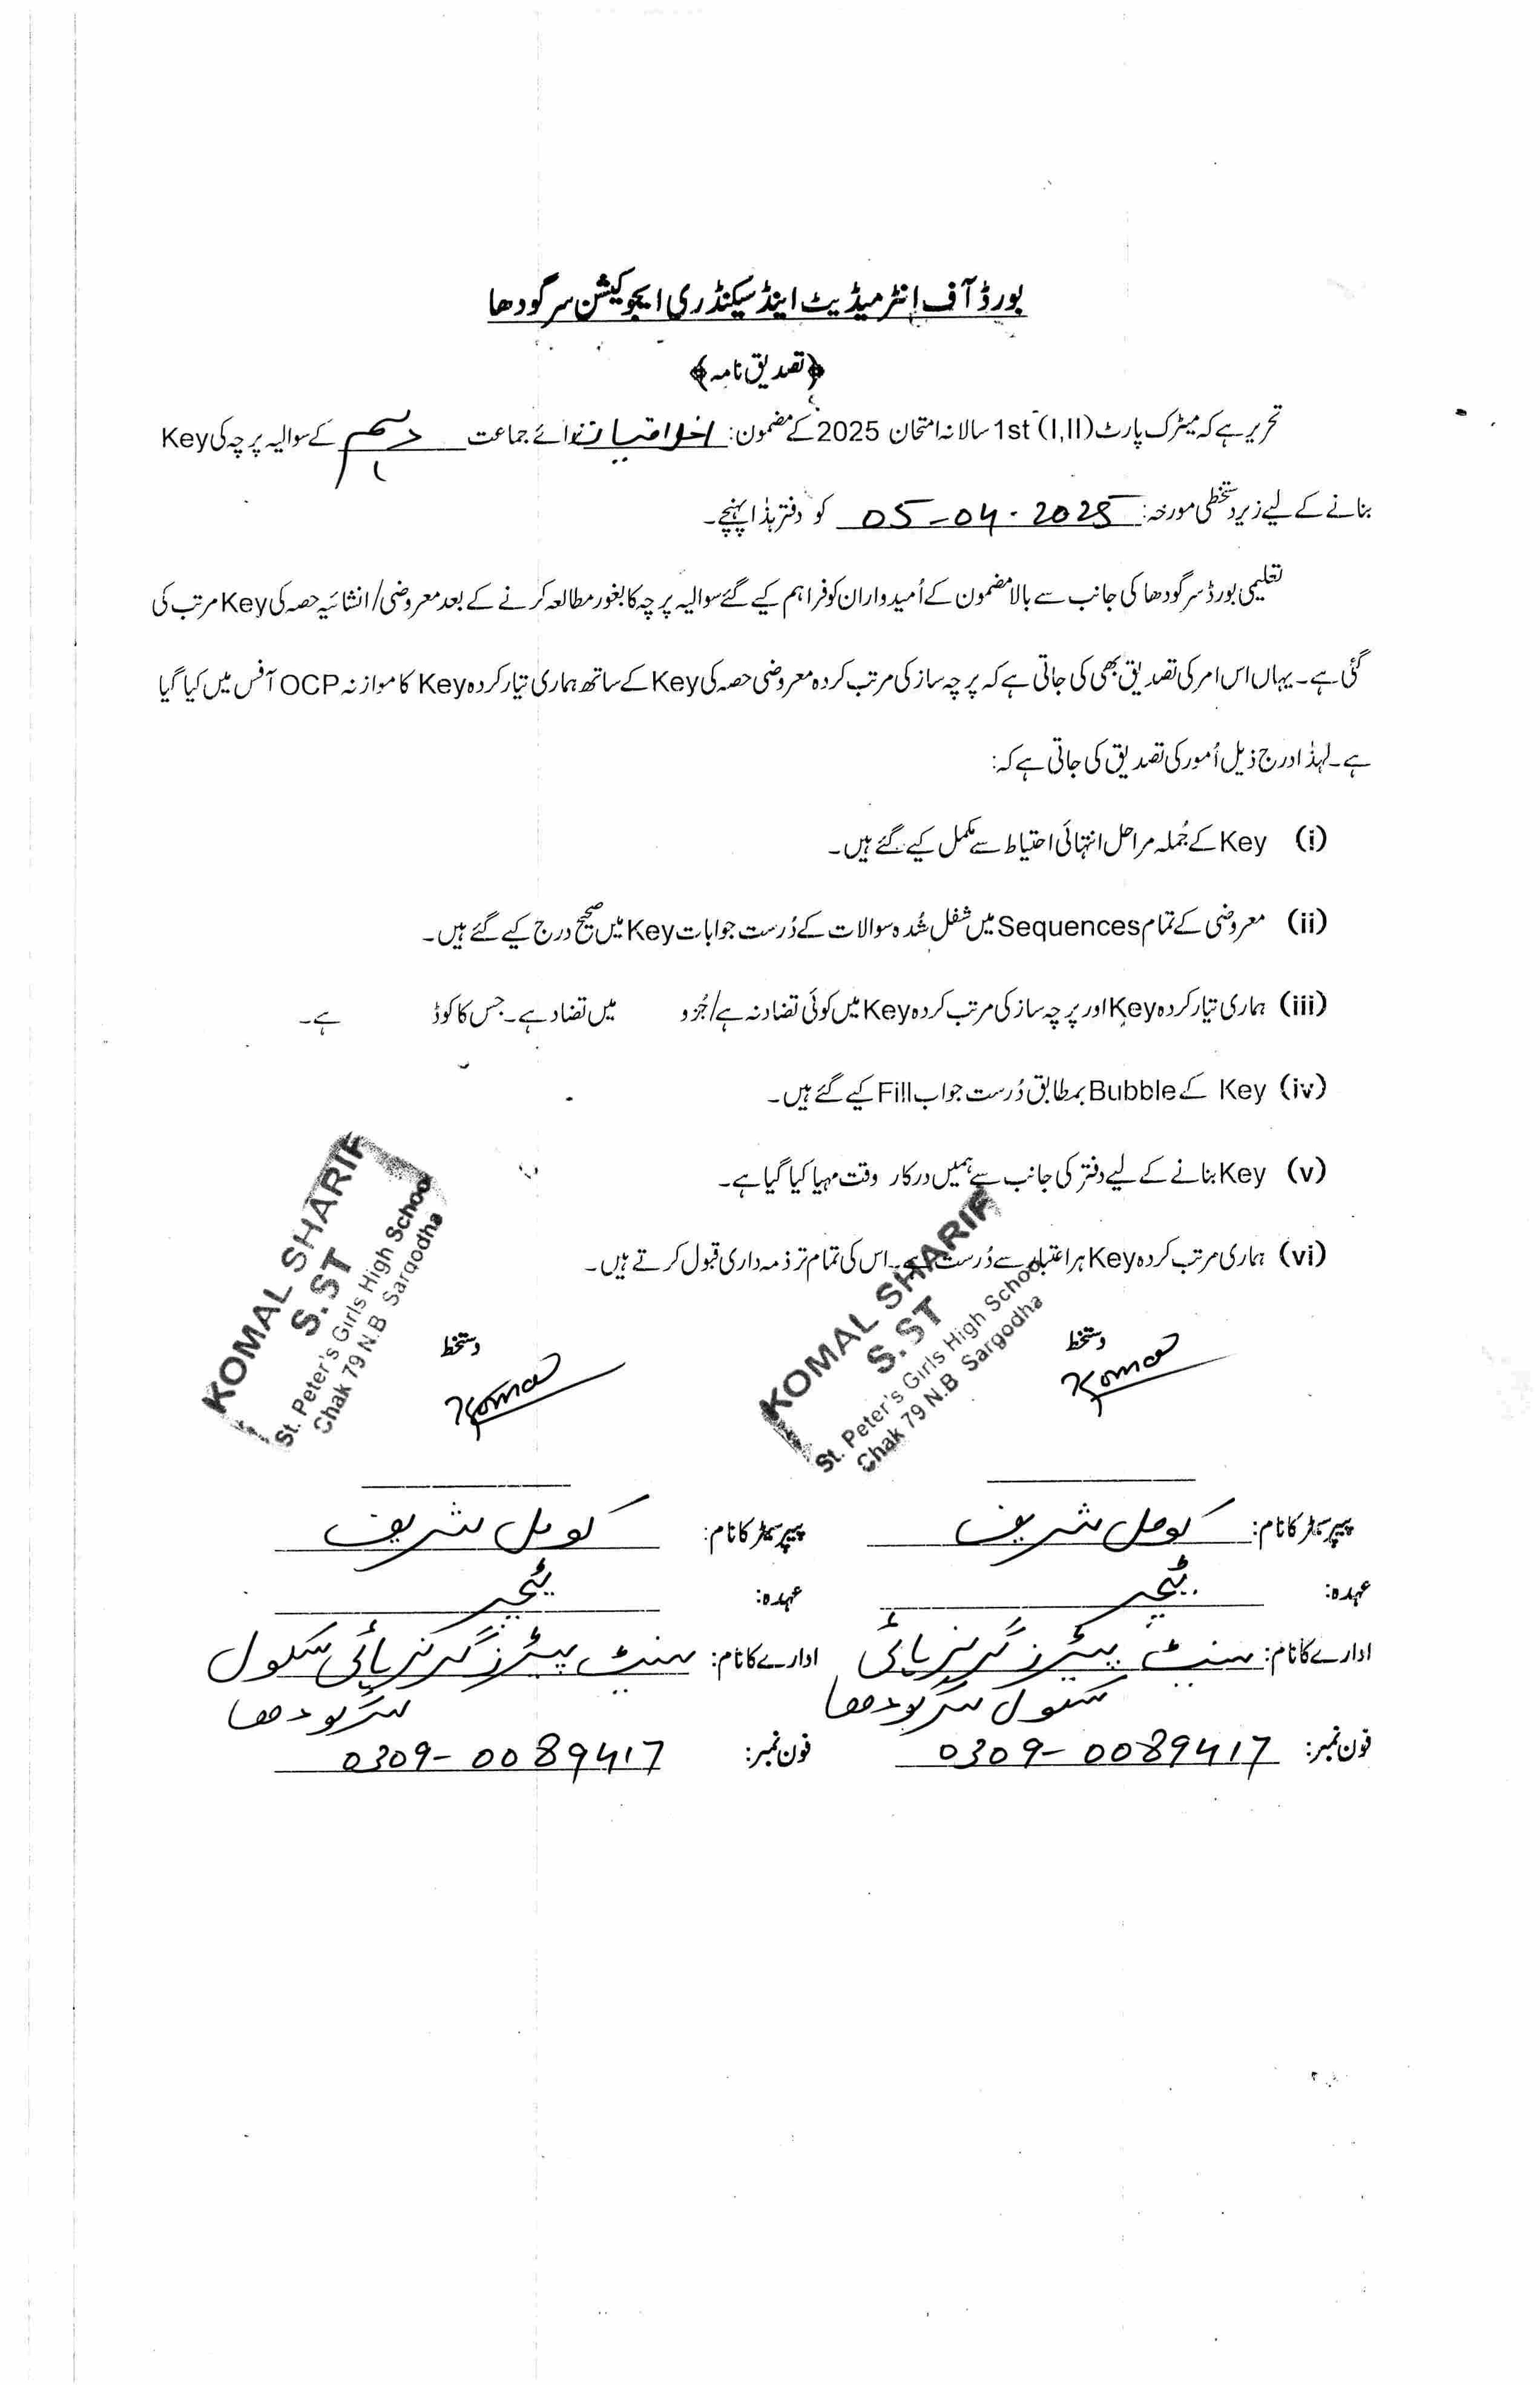 بورڈ آف انٹرمیڈیٹ اینڈ سیکنڈری ایجوکیشن سرگودھا
﴿تصدیق نامہ﴾
تحریر ہے کہ میٹرک پارٹ (I,II) 1st سالانہ امتحان 2025 کے مضمون: اخلاقیات برائے جماعت دہم کے سوالیہ پرچہ کی Key
بنانے کے لیے زیر دستخطی مورخہ: 05-04-2025 کو دفتر ہذا پہنچے۔
تعلیمی بورڈ سرگودھا کی جانب سے بالا مضمون کے اُمیدواران کو فراہم کیے گئے سوالیہ پرچہ کا بغور مطالعہ کرنے کے بعد معروضی/انشائیہ حصہ کی Key مرتب کی
گئی ہے۔ یہاں اس امر کی تصدیق بھی کی جاتی ہے کہ پرچہ ساز کی مرتب کردہ معروضی حصہ کی Key کے ساتھ ہماری تیار کردہ Key کا موازنہ OCP آفس میں کیا گیا
ہے۔ لہذٰا درج ذیل اُمور کی تصدیق کی جاتی ہے کہ:
(i) Key کے جُملہ مراحل انتہائی احتیاط سے مکمل کیے گئے ہیں۔
(ii) معروضی کے تمام Sequences میں شفل شُدہ سوالات کے دُرست جوابات Key میں صحیح درج کیے گئے ہیں۔
(iii) ہماری تیار کردہ Key اور پرچہ ساز کی مرتب کردہ Key میں کوئی تضاد نہ ہے/جُزو میں تضاد ہے۔ جس کا کوڈ ہے۔
(iv) Key کے Bubble بمطابق دُرست جواب Fill کیے گئے ہیں۔
(v) Key بنانے کے لیے دفتر کی جانب سے ہمیں درکار وقت مہیا کیا گیا ہے۔
(vi) ہماری مرتب کردہ Key ہر اعتبار سے دُرست ہے۔ اس کی تمام تر ذمہ داری قبول کرتے ہیں۔
KOMAL SHARIF
S.ST
St. Peter's Girls High School
Chak 79 N.B Sargodha
KOMAL SHARIF
S.ST
St. Peter's Girls High School
Chak 79 N.B Sargodha
دستخط دستخط
Komal Komal
پیپر سیٹر کا نام: کومل شریف پیپر سیٹر کا نام: کومل شریف
عہدہ: ٹیچر عہدہ: ٹیچر
ادارے کا نام: سینٹ پیٹرز گرلز ہائی ادارے کا نام: سینٹ پیٹرز گرلز ہائی سکول
سکول سرگودھا سرگودھا
فون نمبر: 0309-0089417 فون نمبر: 0309-0089417